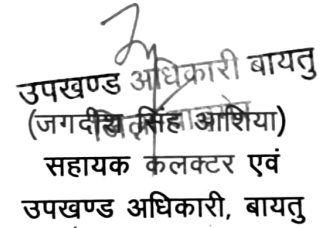 उपखण्ड अधिकारी बायतु
(जगदीश सिंह आशिया)
सहायक कलक्टर एवं
उपखण्ड अधिकारी, बायतु